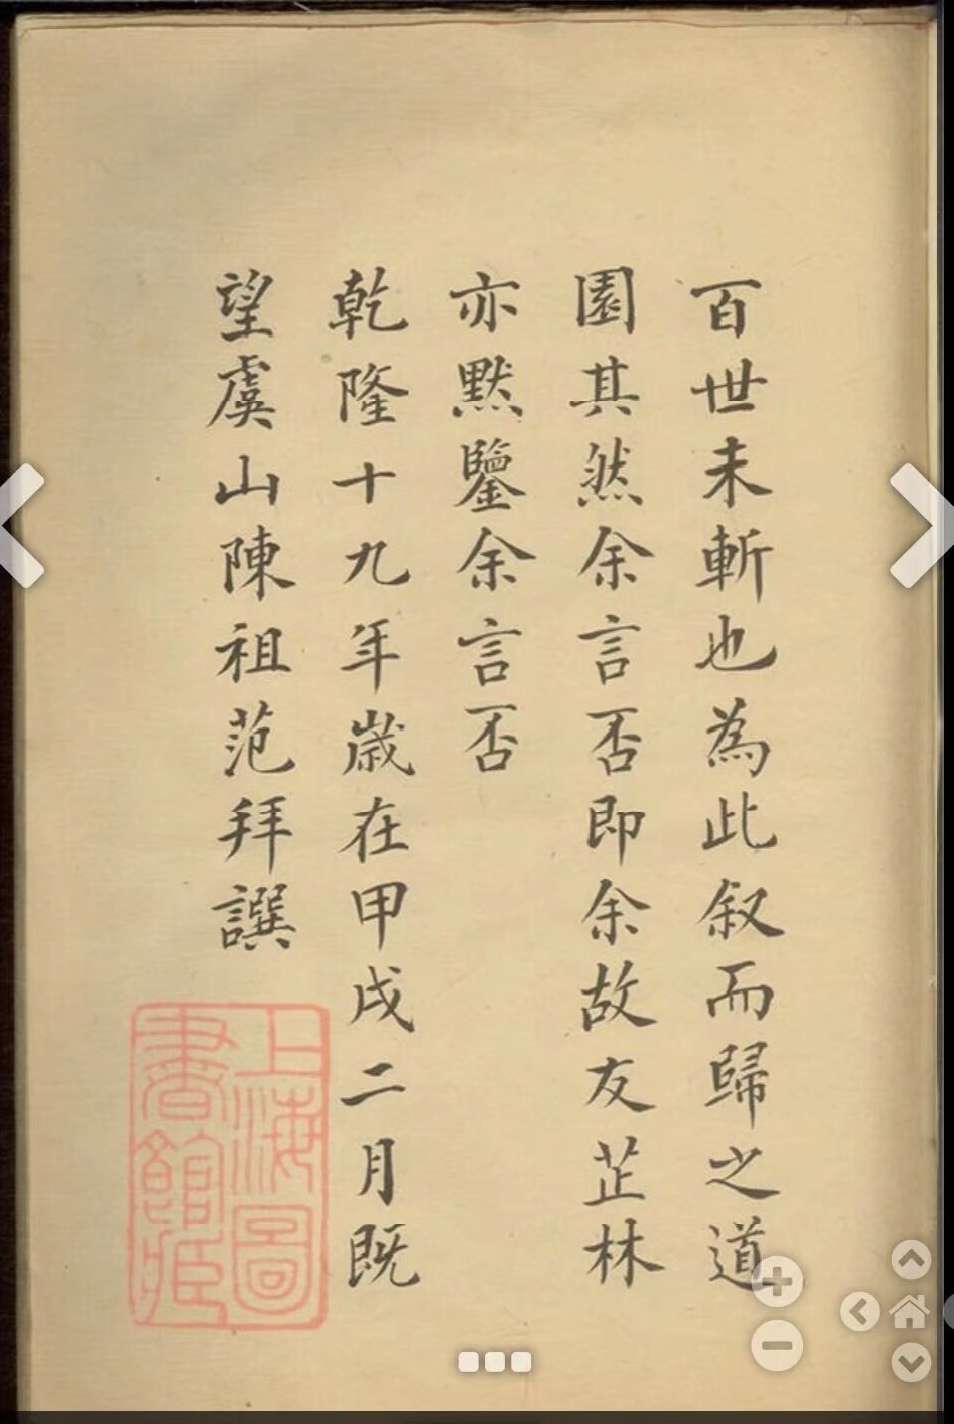 百世未斬也為此叙而歸之道
園其然余言否即余故友芷林
亦默鑒余言否
乾隆十九年歲在甲戌二月既
望虞山陳祖范拜譔
上海圖
書館藏